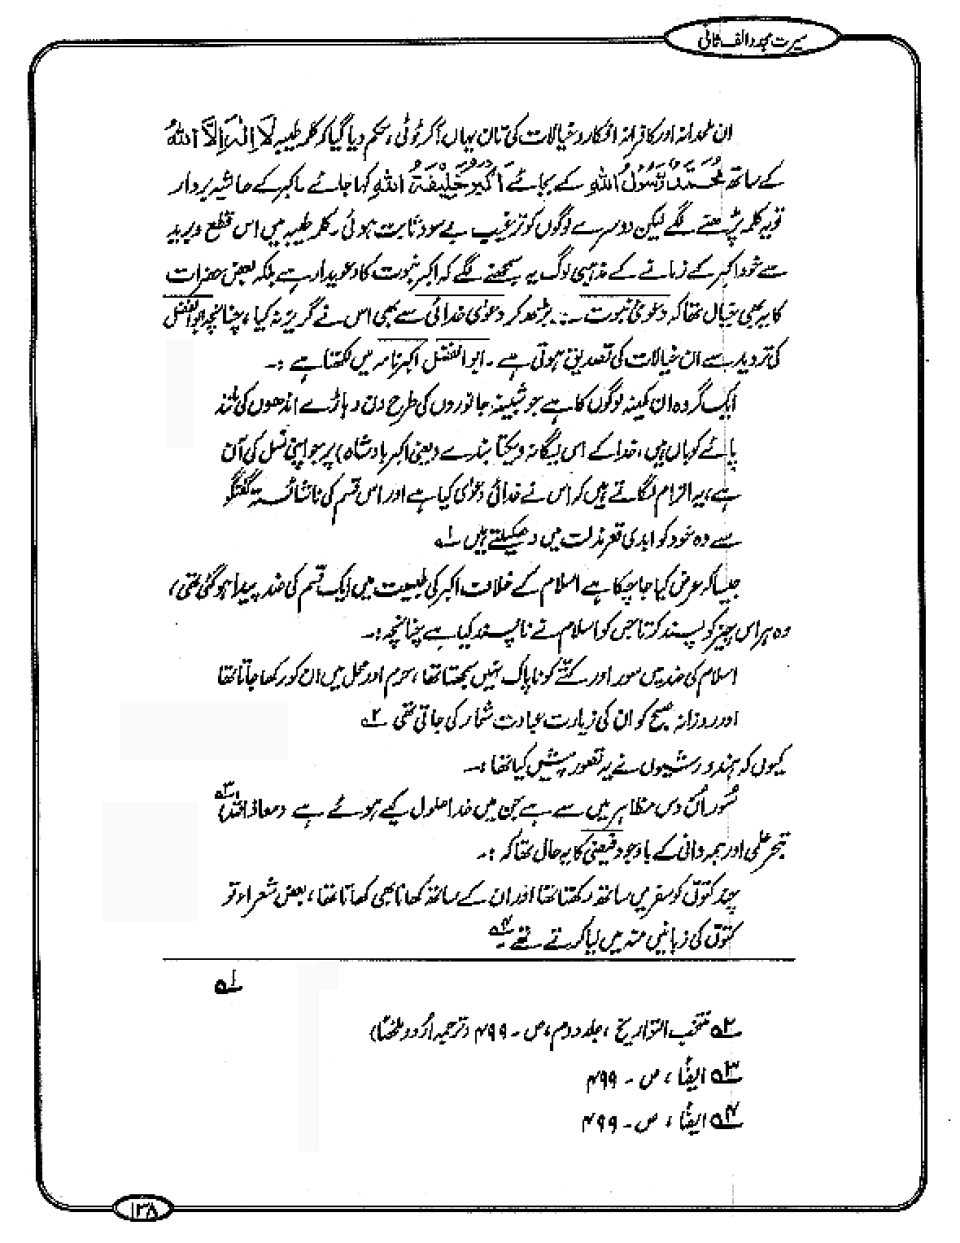 سیرت مجدد الف ثانی
ان ملحدانہ اور کافرانہ افکار و خیالات کی تان یہاں آکر ٹوٹی، حکم دیا گیا کہ کلمہ طیبہ لَا اِلٰہَ اِلَّا اللہُ
کے ساتھ مُحَمَّدٌ رَّسُوْلُ اللہِ کے بجائے اَکْبَرُ خَلِیْفَۃُ اللہِ کہا جائے۔ اکبر کے حاشیہ بردار
تو یہ کلمہ پڑھنے لگے لیکن دوسرے لوگوں کو ترغیب بے سود ثابت ہوئی۔ کلمہ طیبہ میں اس قطع و برید
سے خود اکبر کے زمانے کے مذہبی لوگ یہ سمجھنے لگے کہ اکبر نبوت کا دعویدار ہے بلکہ بعض حضرات
کا یہ بھی خیال تھا کہ دعویٰ نبوت سے بڑھ کر دعویٰ خدائی سے بھی اس نے گریز نہ کیا، چنانچہ ابوالفضل
کی تردید سے ان خیالات کی تصدیق ہوتی ہے۔ ابوالفضل اکبرنامہ میں لکھتا ہے :۔
ایک گروہ ان کمینہ لوگوں کا ہے جو شبینہ جانوروں کی طرح دن دہاڑے اندھوں کی مانند
پائے کوباں ہیں، خدا کے اس یگانہ و یکتا بندے (یعنی اکبر بادشاہ) پر جو اپنی نسل کی آن
ہے، یہ الزام لگاتے ہیں کہ اس نے خدائی دعویٰ کیا ہے اور اس قسم کی ناشائستہ گفتگو
سے وہ خود کو ابدی قعر مذلت میں دھکیلتے ہیں ۱؎
جیسا کہ عرض کیا جا چکا ہے اسلام کے خلاف اکبر کی طبیعت میں ایک قسم کی ضد پیدا ہو گئی تھی،
وہ ہر اس چیز کو پسند کرتا جس کو اسلام نے ناپسند کیا ہے چنانچہ :۔
اسلام کی ضد میں سور اور کتے کو ناپاک نہیں سمجھتا تھا، حرم اور محل میں ان کو رکھا جاتا تھا
اور روزانہ صبح کو ان کی زیارت عبادت شمار کی جاتی تھی ۲؎
کیوں کہ ہندو رشیوں نے یہ تصور پیش کیا تھا :۔
سُور اُن دس مظاہر میں سے ہے جن میں خدا حلول کیے ہوئے ہے (معاذ اللہ) ۳؎
تبحر علمی اور ہمہ دانی کے باوجود فیضی کا یہ حال تھا کہ :۔
چند کتوں کو سفر میں ساتھ رکھتا تھا اور ان کے ساتھ کھانا بھی کھاتا تھا، بعض شعراء تو
کتوں کی زبانیں منہ میں لیا کرتے تھے ۴؎
۱؎
۲؎ منتخب التواریخ، جلد دوم، ص۔ ۴۹۹ (ترجمہ اُردو ملخصًا)
۳؎ ایضًا، ص۔ ۴۹۹
۴؎ ایضًا، ص۔ ۴۹۹
۱۳۸